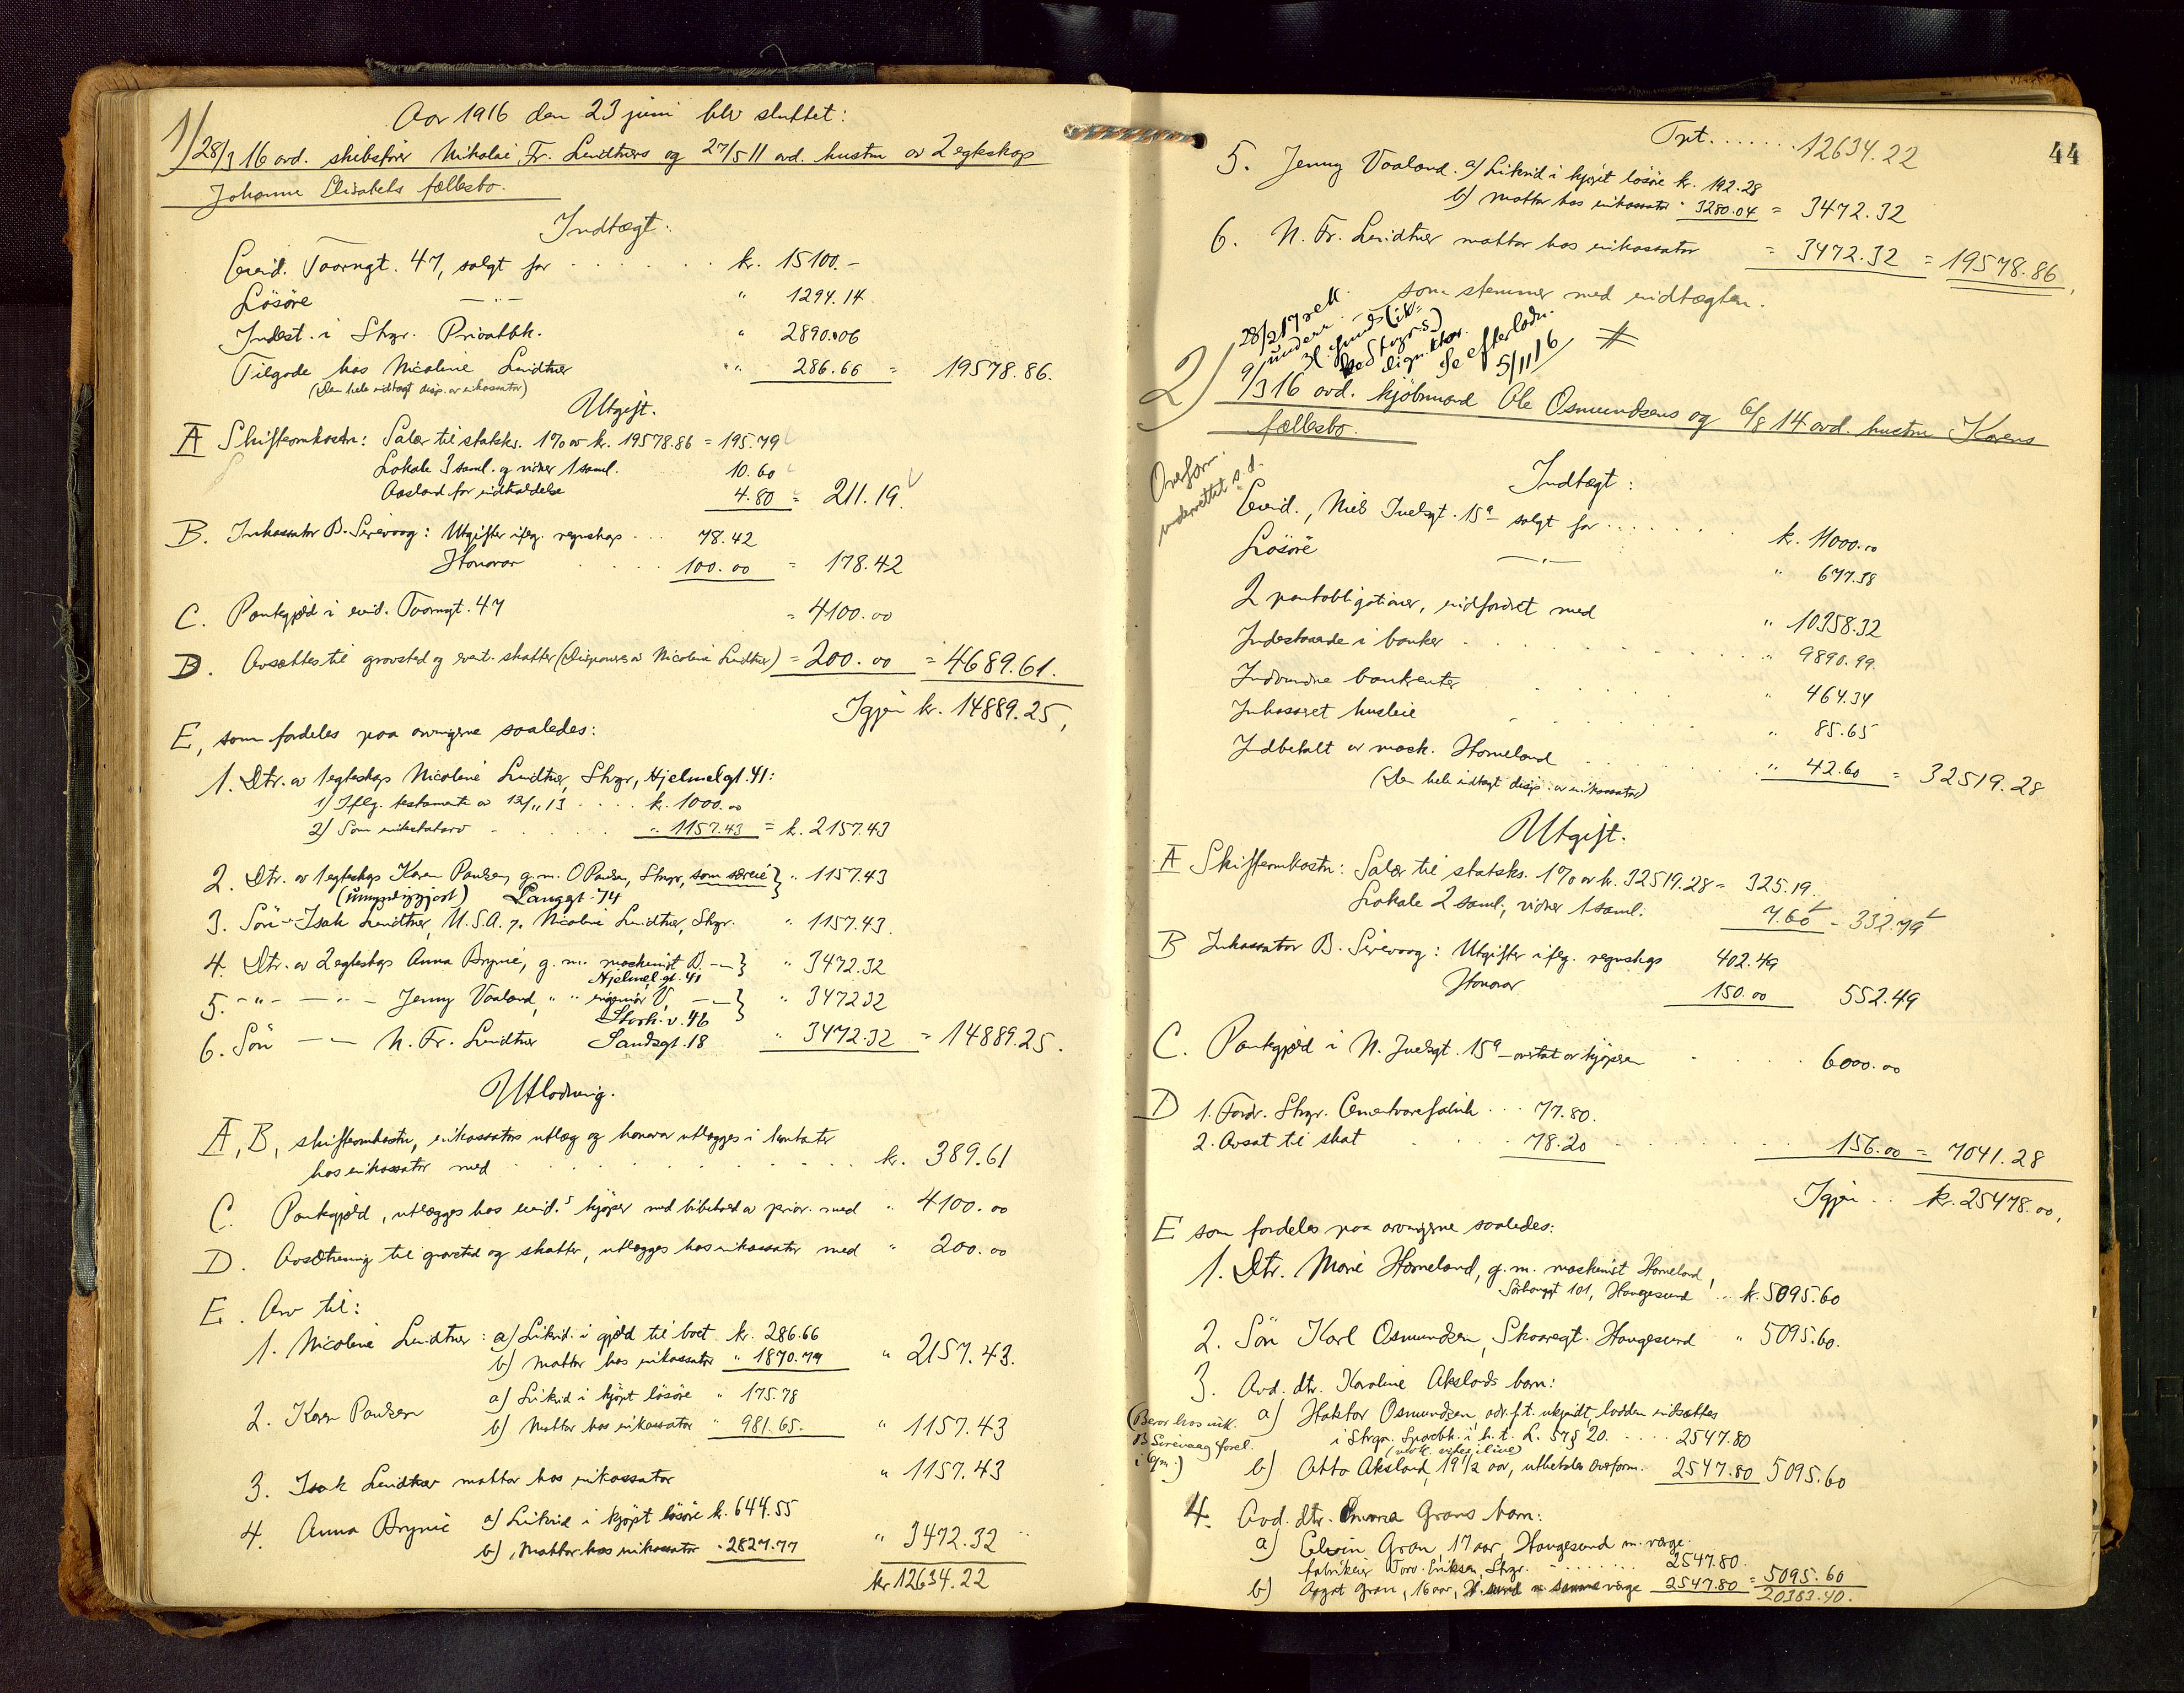 Aar 1916 den 23 juni blev sluttet:
1/ 28/3 16 avd. skibsfører Nikolai Fr. Lindtners og 27/5 11 avd. hustru av 2 egteskap
Johanne Elisabets fællesbo.
Indtægt:
Eiend. Taarngt. 47, solgt for . . . . . . kr. 15100.-
Lösöre —"— " 1294.14
Indest. i Stvgr. Privatbk. " 2890.06
Tilgode hos Nicoline Lindtner " 286.66 = 19578.86.
(Den hele indtægt disp. av inkassator)
Utgift.
A Skifteomkostn: Salær til statsks. 1% av kr. 19578.86 = 195.79
Lokale 3 saml. og vidner 1 saml. 10.60
Avsland for indkaldelse 4.80 = 211.19.
B. Inkassator B. Sirevaag: Utgifter iføg. regnskap . . . 78.42
Honorar . . . . 100.00 = 178.42
C. Pantegjæld i eiend. Taarngt. 47 = 4100.00
D. Avsættes til gravsted og event. skatter (disponeres av Nicoline Lindtner) = 200.00 = 4689.61.
Igjen kr. 14889.25,
E, som fordeles paa arvingerne saaledes:
1. Dtr. av 1 egteskap Nicoline Lindtner, Stvgr, Hjelmelgt. 41:
1) Iflg. testamente av 12/11 13 . . . . k. 1000.00
2) Som intestatarv - . . . . " 1157.43 = k. 2157.43
2. Dtr. av 1 egteskap Karen Paulsen, g.m. O Paulsen, Stvgr, som særeie } " 1157.43
(umyndiggjort) Langgt. 74
3. Sön —"— Isak Lindtner, U.S.A. p. Nicoline Lindtner, Stvgr. " 1157.43.
4. Dtr. av 2 egteskap Anna Bryne, g. m. maskinist B. —"— } " 3472.32
Hjelmel.gt. 41
5. -"- —"— Jenny Vaaland, " " ingeniör V, —"— } " 3472.32
Stork. v. 46
6. Sön —"— N. Fr. Lindtner Sandsgt. 18 " 3472.32 = 14889.25.
Utlodning.
A, B, skifteomkostn, inkassators utlæg og honorar utlægges i kontanter
hos inkassator med . . . . . . . . . kr. 389.61
C. Pantegjæld, utlægges hos eiend.s kjøper med bibehold av prior. med " 4100.00
D. Avsætning til gravsted og skatter, utlægges hos inkassator med " 200.00
E. Arv til:
1. Nicoline Lindtner: a) Likvid. i gjæld til boet kr. 286.66
b) mottar hos inkassator " 1870.79 " 2157.43.
2. Karen Paulsen a) Likvid i kjøpt lösöre " 175.78
b) Mottar hos inkassator " 981.65. " 1157.43
3. Isak Lindtner mottar hos inkassator " 1157.43
4. Anna Bryne a) Likvid i kjøpt lösöre k. 644.55
b) Mottar hos inkassator " 2827.77 " 3472.32
kr 12634.22
44
Tpt. . . . . . . 12634.22
5. Jenny Vaaland. a) Likvid i kjøpt lösöre kr. 192.28
b) mottar hos inkassator " 3280.04 = 3472.32
6. N. Fr. Lindtner mottar hos inkassator = 3472.32 = 19578.86,
som stemmer med indtægten.
28/2 17
Se efterlodn. 5/11 16
2) 9/3 16 avd. kjöbmand Ole Osmundsens og 6/8 14 avd. hustru Karens
fællesbo.
Overform.
underrettet s. d.
Indtægt:
Eiend., Niels Juelsgt. 15a solgt for . . . . . . kr. 11000.00
Lösöre —"— " 677.38
2 pantobligationer, indfordret med " 10358.32
Indestaaende i banker . . . . . . " 9890.99.
Indvundne bankrenter . . . . " 464.34
Inkassert husleie . . . . " 85.65
Indbetalt av mask. Horneland . . . . " 42.60 = 32519.28
(Den hele indtægt disp. av inkassator)
Utgift.
A Skifteomkostn: Salær til statsks. 1% av kr. 32519.28 = 325.19.
Lokale 2 saml., vidner 1 saml. 7.60 - 332.79
B Inkassator B. Sirevaag: Utgifter iføg. regnskap 402.49
Honorar 150.00 552.49
C. Pantegjæld i N. Juelsgt. 15a - overtat av kjøperen . . . . 6000.00
D 1. Fordr. Stvgr. Cementvarefabrik . . . 77.80.
2. Avsat til skat . . . . 78.20 . . . . . 156.00 = 7041.28
Igjen . . kr. 25478.00,
E som fordeles paa arvingerne saaledes:
1. Dtr. Marie Horneland, g. m. maskinist Horneland,
Sörhauggt 101, Haugesund . . k. 5095.60
2. Sön Karl Osmundsen, Skaaregt. Haugesund " 5095.60.
3. Avd. dtr. Karoline Akslands barn:
(Beror hos ink.
B Sirevaag forel.
i Ogn.)
a) Haktor Osmundsen, adr. f.t. ukjendt, lodden indsættes
i Stvgr. Sparebk. i h. t. L. 57 § 20. . . . . 2547.80
b) Otto Aksland, 19 1/2 aar, utbetales Overform. 2547.80 5095.60
4. Avd. dtr. Emma Grans barn:
a) Elvin Gran, 17 aar, Haugesund m. værge
fabrikeier Tord Eriksen, Stvgr. . . . . . . 2547.80.
b) Aagot Gran, 16 aar, H.sund m samme værge 2547.80 = 5095.60
20383.40.